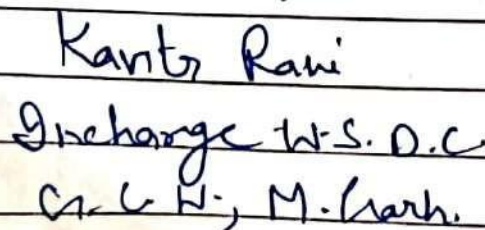 Kavita Rani
Incharge W.S.D.C
G.C.W., M.Garh.